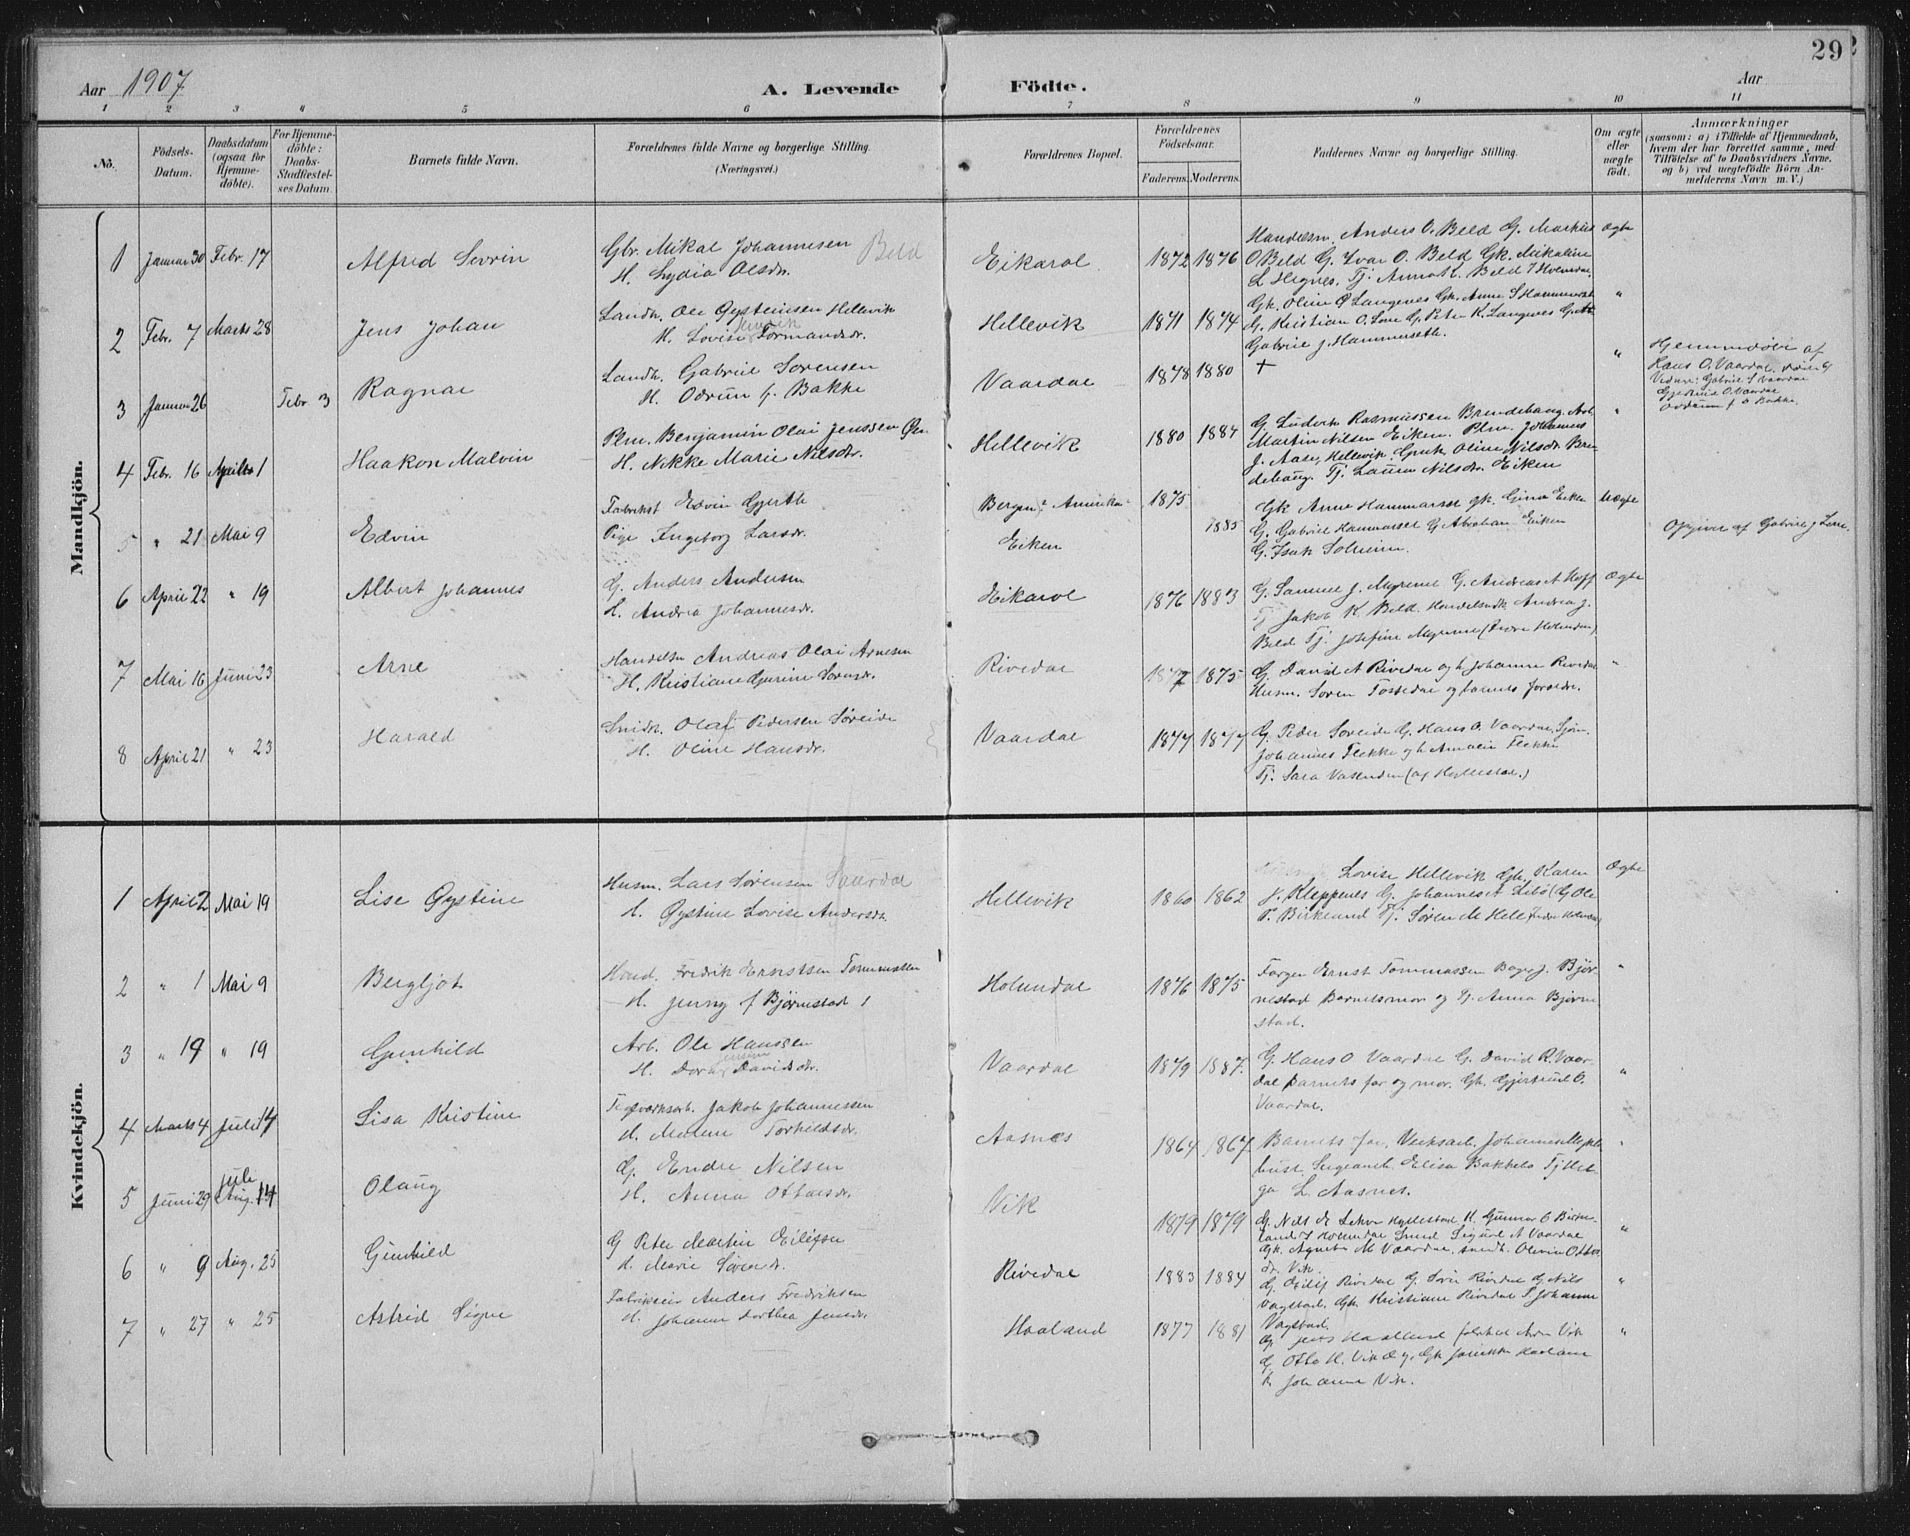 29
Aar 1907
A. Levende Födte.
Aar
1 2 3 4 5 6 7 8 9 10 11
No.
Födsels-
Datum.
Daabsdatum
(ogsaa for
Hjemme-
döbte).
For Hjemme-
döbte:
Daabs-
Stadfæstel-
ses Datum.
Barnets fulde Navn.
Forældrenes fulde Navne og borgerlige Stilling.
(Næringsvei.)
Forældrenes Bopæl.
Forældrenes
Födselsaar.
Faderens. Moderens.
Faddernes Navne og borgerlige Stilling.
Om ægte
eller
uægte
födt.
Anmærkninger
(saasom: a) i Tilfælde af Hjemmedaab,
hvem der har forrettet samme, med
Tilföielse af to Daabsvidners Navne,
og b) ved uægtefödte Börn An-
melderens Navn m. V.)
Mandkjön.
1 Januar 30 Febr. 17 Alfred Sevrin
Gbr. Mikal Johannesen Beld
H. Lydia Olsdr.
Eikarol 1872 1876
Handelsm. Anders O. Beld G. Markus
O Beld G. Ivar O. Beld Gk. Mikaline
L Hegnes. Tj. Anna L. Beld
Ægte
2 Febr. 7 Marts 28 Jens Johan
Landh. Ole Øysteinsen Hellevik
H. Lovise Jendik Tormandsdr.
Hellevik 1871 1874
Gk. Oline O Langenes Gk. Anne S Hammerset
G. Kristian O. Lone G. Peter K. Langenes
Gabriel J. Hammerseth.
"
3 Januar 26 Febr 3 Ragnar
Landh. Gabriel Sørensen
H. Odrun f. Bakke
Vaardal 1878 1880 +
"
Hjemmedøbt af
Hans O. Vaardal.
Vidner: Gabriel S Vaardal
Gjertrud O. Vaardal
4 Febr. 16 April 1 Haakon Malvin
Plm. Benjamin Olai Jenssen
H. Nikke Marie Nilsdr.
Hellevik 1880 1887
G. Ludvik Rasmussen Brendehaug. Arb.
Martin Nilsen Eiken. Plm. Johannes
J. Aase, Hellevik. Gk. Oline Nilsdr. Bren-
dehaug. Tj. Laura Nilsdr. Eiken
"
5 " 21 Mai 9 Edvin
Fabrikst Edvin Gjerth
Pige Ingeborg Larsdr.
(Bergen)? Amerika? 1875
Eiken 1885
Gk Anne Hammerset gk. Gina Eiken
G. Gabriel Hammarset G Abraham Eiken
G. Isak Solheim.
Uægte
Opgivet af Gabriel J Lone.
6 April 22 " 19 Albert Johannes
G. Anders Andersen
H. Andrea Johannesdr.
Eikarol 1876 1883
G. Samuel J. Myrene G. Andreas A Hoff
Tj Jakob K Beld. Andrea J.
Beld Tj. Josefine Myrene (Indre Holmedal)
Ægte
7 Mai 16 Juni 23 Arne
Handelsm Andreas Olai Arnesen
H. Kristiane Gurine Sørensdr.
Rivedal 1877 1875
G. David A Rivedal og h. Johanne Rivedal
Husm. Søren Fossedal og barnets forældr.
"
8 April 21 " 23 Harald
Snidk. Olaf Pedersen Søreide
H. Oline Hansdr.
Vaardal 1877 1877
G. Peder Søreide G. Hans O. Vaardal.
Johannes Flekke og h Amalie Flekke
Tj. Sara Vasenden (af Hyllestad.)
Kvindekjön.
1 April 2 Mai 19 Lise Øystine
Husm. Lars Sørensen Saurdal
H. Øystine Lovise Andersdr.
Hellevik 1860 1862
Lovise Hellevik Gk. Karen
J. Kleppenes G. Johannes A Lebø (G. Ole
P. Birkeland Tj. Søren M Helle (Indre Holmedal)
Ægte
2 " 1 Mai 9 Bergljot
Hand. Fredrik Ernstsen Tommassen
H. Jenny f Bjørnestad
Holmedal 1876 1875
Farger Ernst Tommassen Bager J. Bjør-
nestad Barnets mor og Tj. Anna Bjørne
stad.
"
3 " 19 " 19 Gunhild
Arb. Ole Hanssen
H. Dorte Davidsdr.
Vaardal 1879 1887.
G. Hans O Vaardal G. David R. Vaar-
dal Barnets far og mor. Gk. Gjertrud O.
Vaardal.
"
4 Marts 4 Juli 14 Lisa Kristine
Teglværksarb. Jakob Johannessen
H. Malene Torkildsdr.
Aasnes 1864 1867
Barnets far, Verksarb. Johannes Mykle-
bust Sergeant Elisa Bakkebø Tj Hel-
ga L. Aasnes.
"
5 Juni 29 Juli Aug. 14 Olaug
G. Endre Nilsen
H. Anna Ottarsdr.
Vik 1879 1879
G. Nils E Hyllestad. H. Gunnar O Birke-
land J Holmedal Smed Sigurd A Vaardal
Gk. Agnete M Vaardal, snedk. Olivia Otto
dr. Vik
"
6 " 9 Aug. 25 Gunhild
G Peter Martin Eilifsen
H. Marie Sørensdr.
Rivedal 1883 1884
G. Eilif Rivedal G. Søren Rivedal G. Nils
Vagstad. Gk Kristiane Rivedal S. Johanne
Vagstad.
"
7 " 27 " 25 Astrid Signe
Fabrikeier Anders Fredriksen
H. Johanne Dorthea Jensdr.
Haaland 1877 1881
G. Jens Haaland
G. Otto H. Vik Gk. Haaland
Johanne Vik.
"